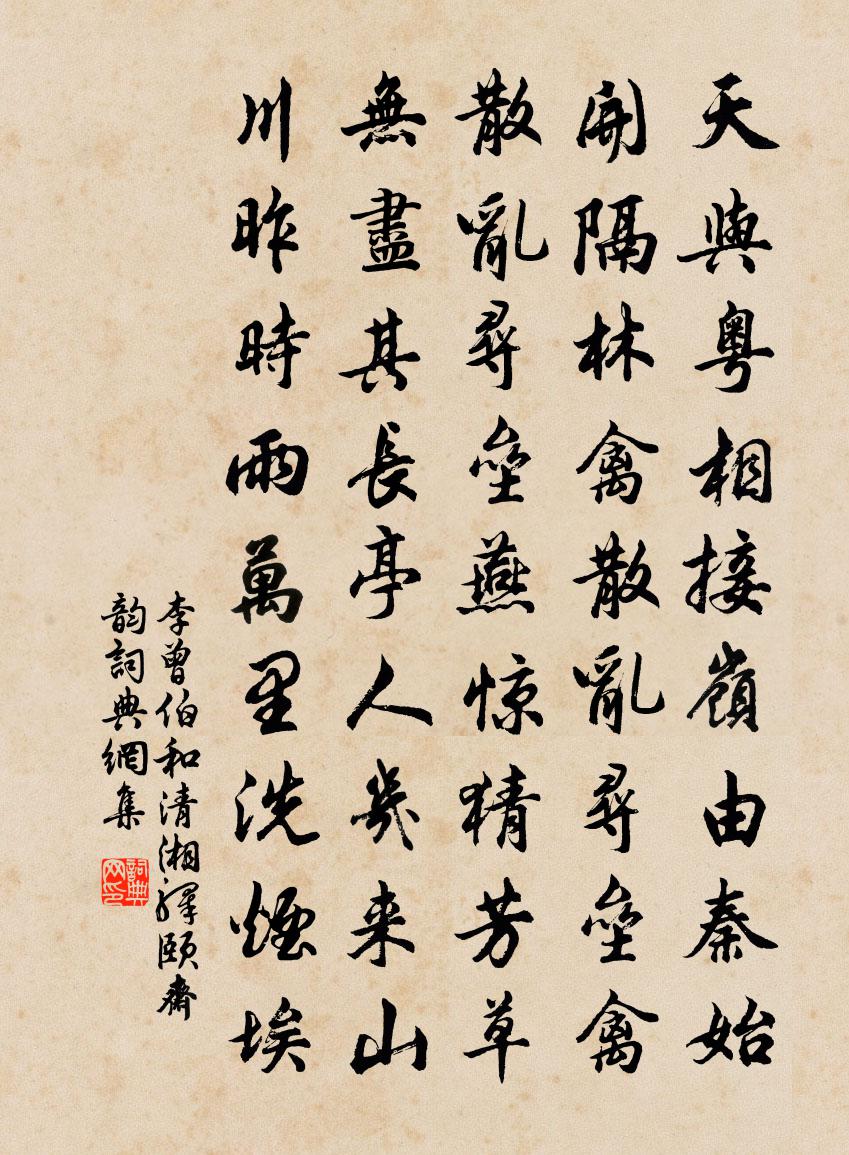 天與粵相接嶺由秦始
開隔林禽散亂尋壘禽
散亂尋壘燕惊猜芳草
無盡其長亭人幾来山
川昨時雨萬里洗煙埃
李曾伯和清湘驛頤齋
韵詞典網集
詞典网印